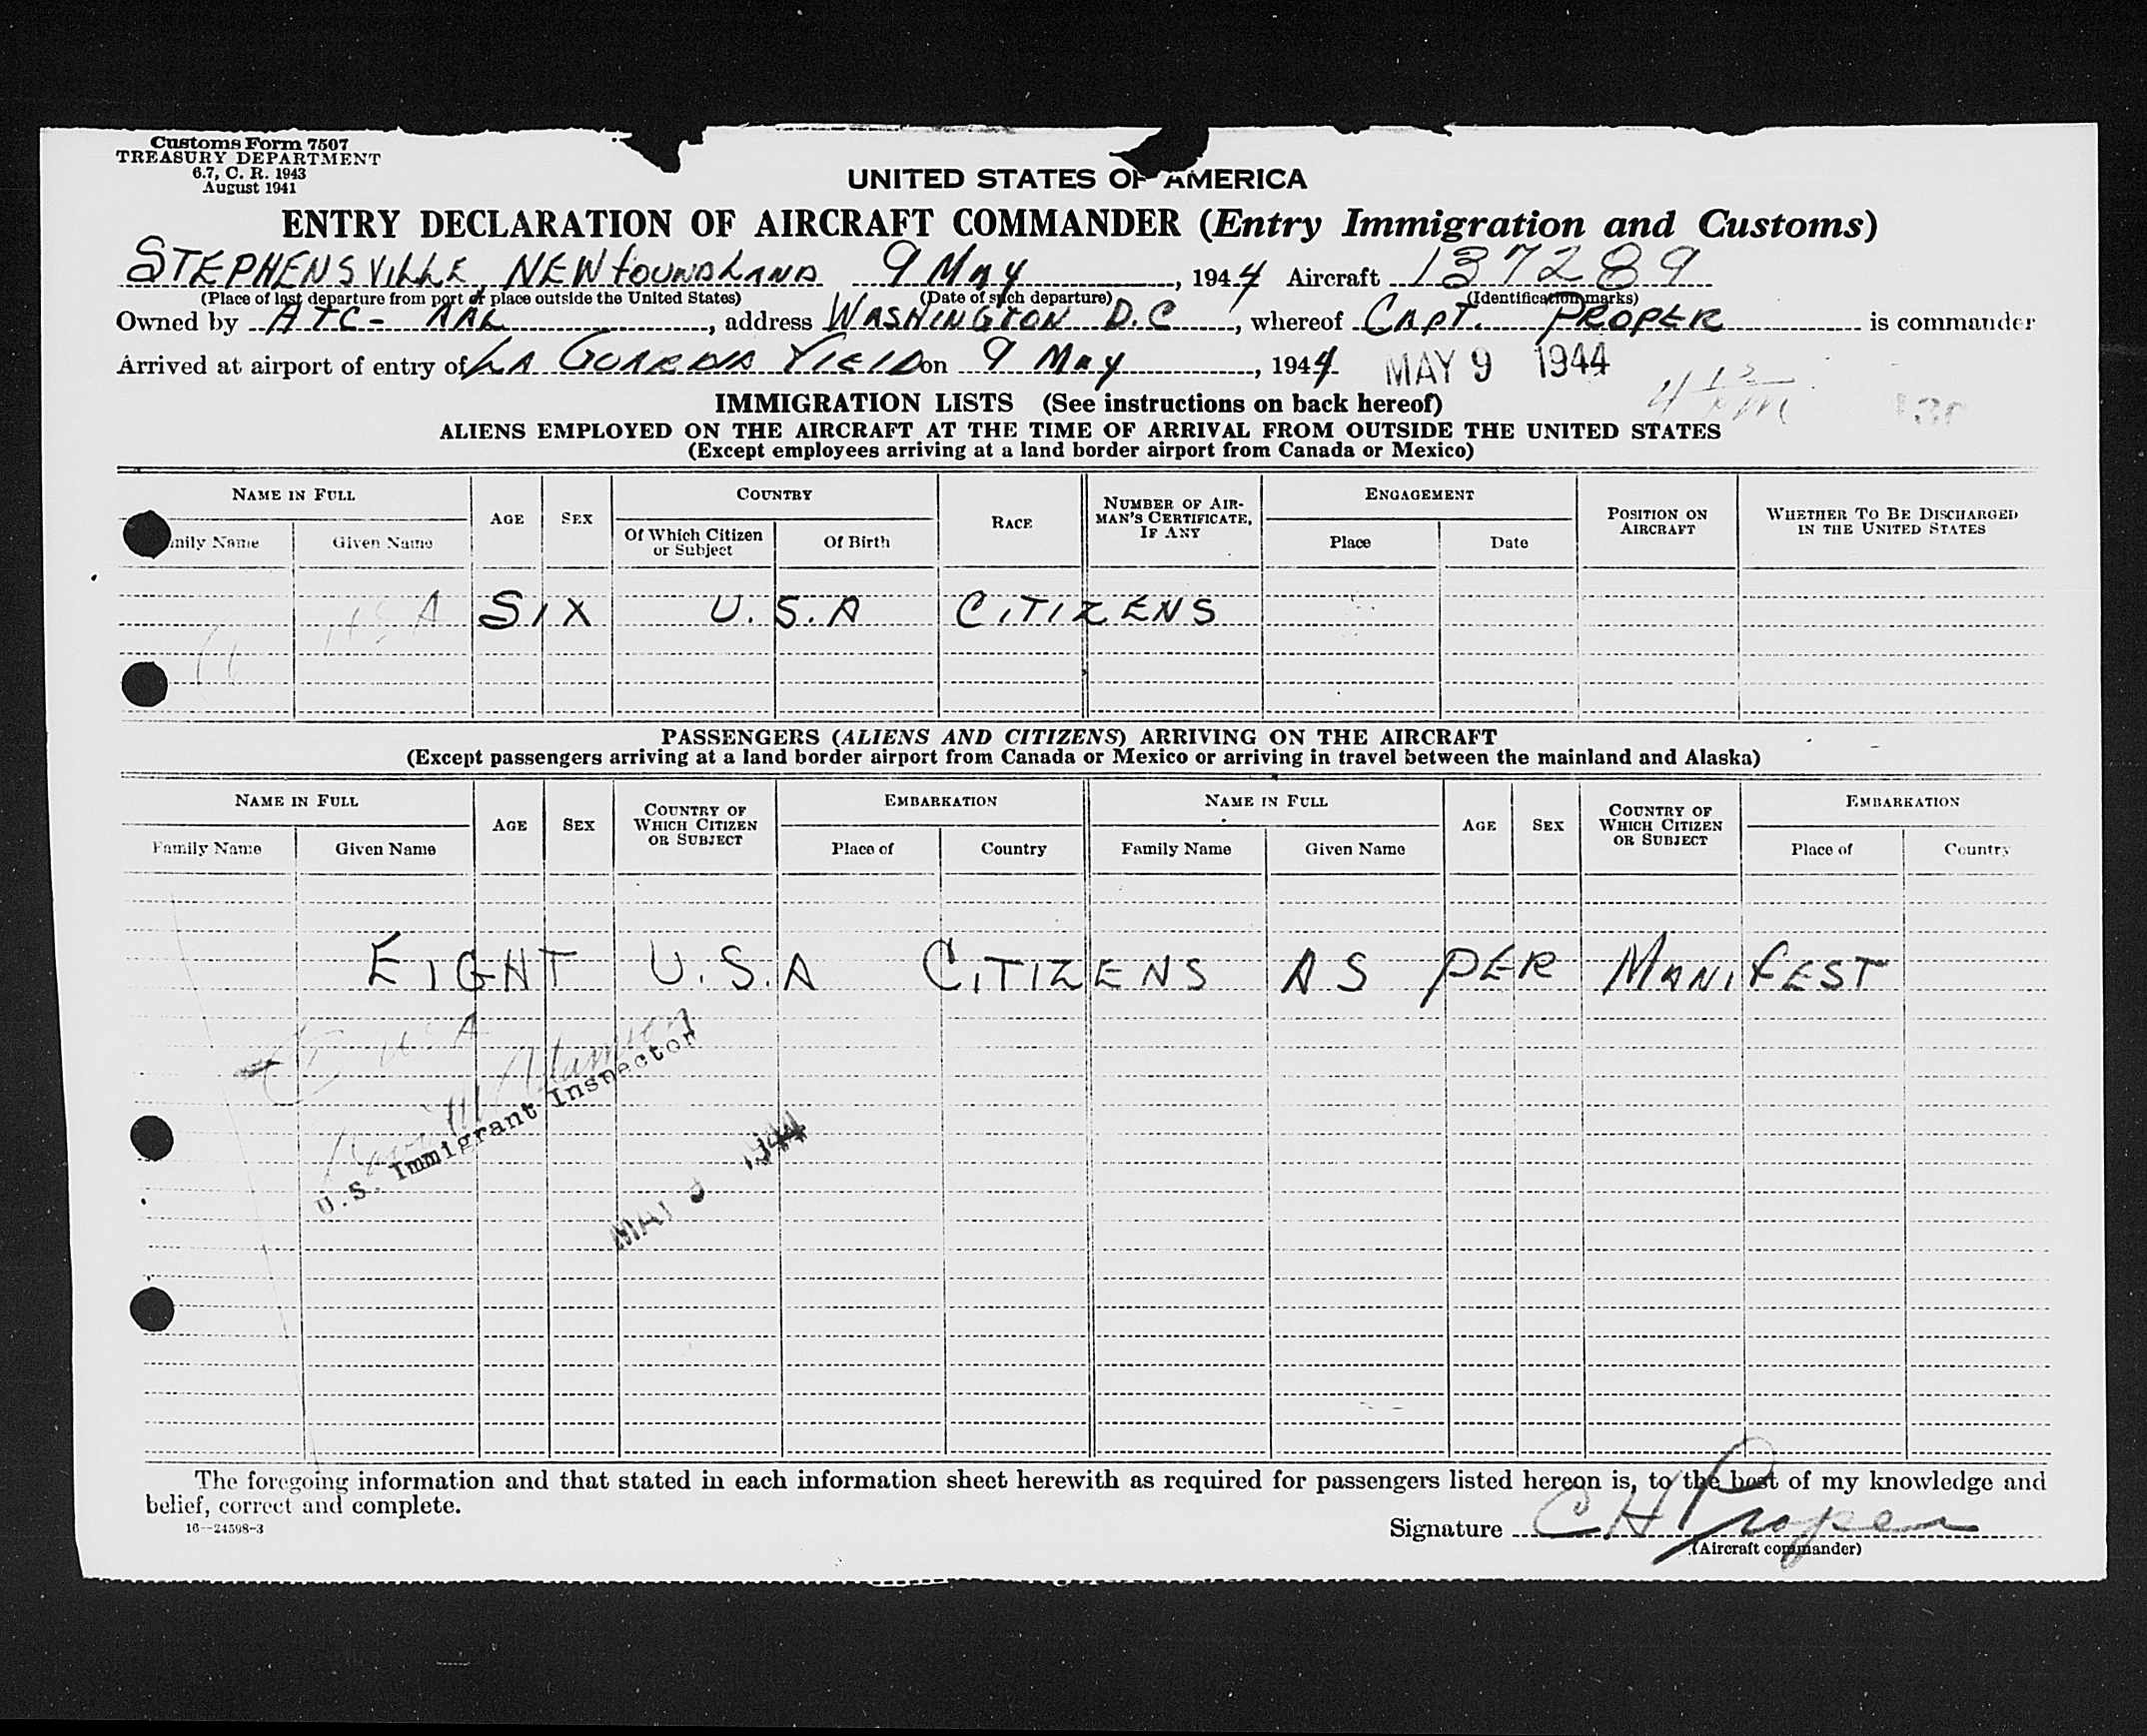 Customs Form 7507
TREASURY DEPARTMENT
6.7, C. R. 1943
August 1941
UNITED STATES OF AMERICA
ENTRY DECLARATION OF AIRCRAFT COMMANDER (Entry Immigration and Customs)
STEPHENSVILLE, NEWFOUNDLAND 9 May, 1944 Aircraft 137289
(Place of last departure from port or place outside the United States) (Date of such departure) (Identification marks)
Owned by ATC - AAL, address WASHINGTON D.C, whereof CAPT. PROPER is commander
Arrived at airport of entry of LA GUARDIA FIELD on 9 May, 1944 MAY 9 1944
IMMIGRATION LISTS (See instructions on back hereof)
ALIENS EMPLOYED ON THE AIRCRAFT AT THE TIME OF ARRIVAL FROM OUTSIDE THE UNITED STATES
(Except employees arriving at a land border airport from Canada or Mexico)
NAME IN FULL AGE SEX COUNTRY RACE NUMBER OF AIRMAN'S CERTIFICATE, IF ANY ENGAGEMENT POSITION ON AIRCRAFT WHETHER TO BE DISCHARGED IN THE UNITED STATES
mily Name Given Name Of Which Citizen or Subject Of Birth Place Date
SIX U.S.A CITIZENS
PASSENGERS (ALIENS AND CITIZENS) ARRIVING ON THE AIRCRAFT
(Except passengers arriving at a land border airport from Canada or Mexico or arriving in travel between the mainland and Alaska)
NAME IN FULL AGE SEX COUNTRY OF WHICH CITIZEN OR SUBJECT EMBARKATION NAME IN FULL AGE SEX COUNTRY OF WHICH CITIZEN OR SUBJECT EMBARKATION
Family Name Given Name Place of Country Family Name Given Name Place of Country
EIGHT U.S.A CITIZENS AS PER MANIFEST
U.S. Immigrant Inspector
MAY 9 1944
The foregoing information and that stated in each information sheet herewith as required for passengers listed hereon is, to the best of my knowledge and
belief, correct and complete.
16—24598-3
Signature CH Proper
(Aircraft commander)